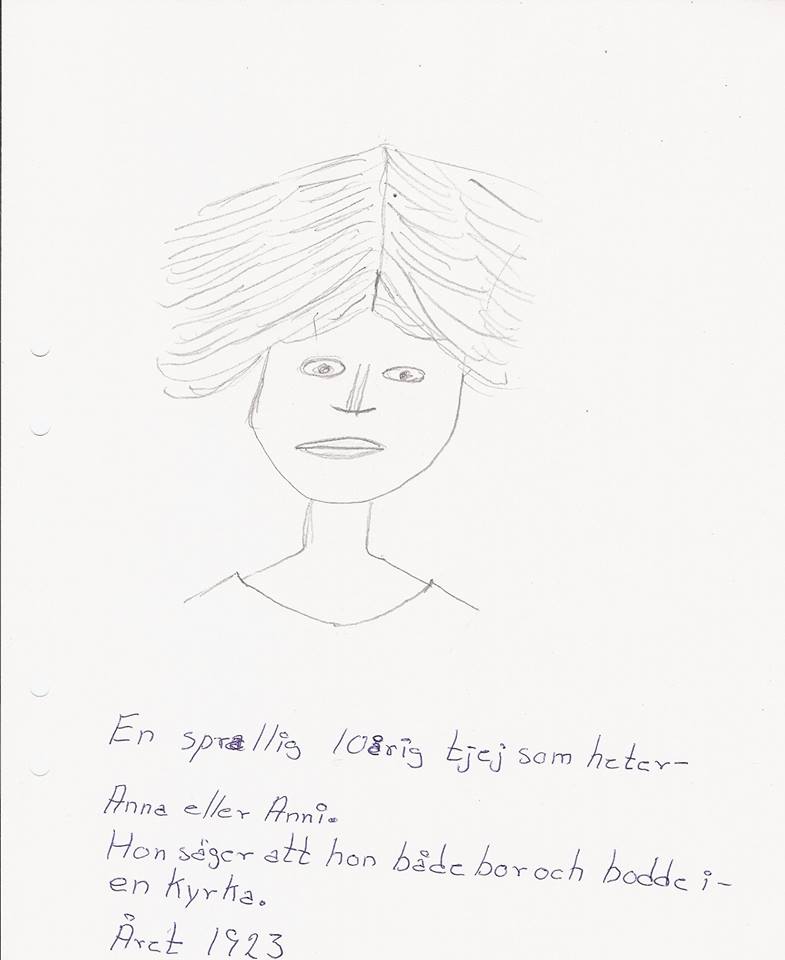 En sprallig 10årig tjej som heter-
Anna eller Anni.
Hon säger att hon både bor och bodde i-
en kyrka.
Året 1923